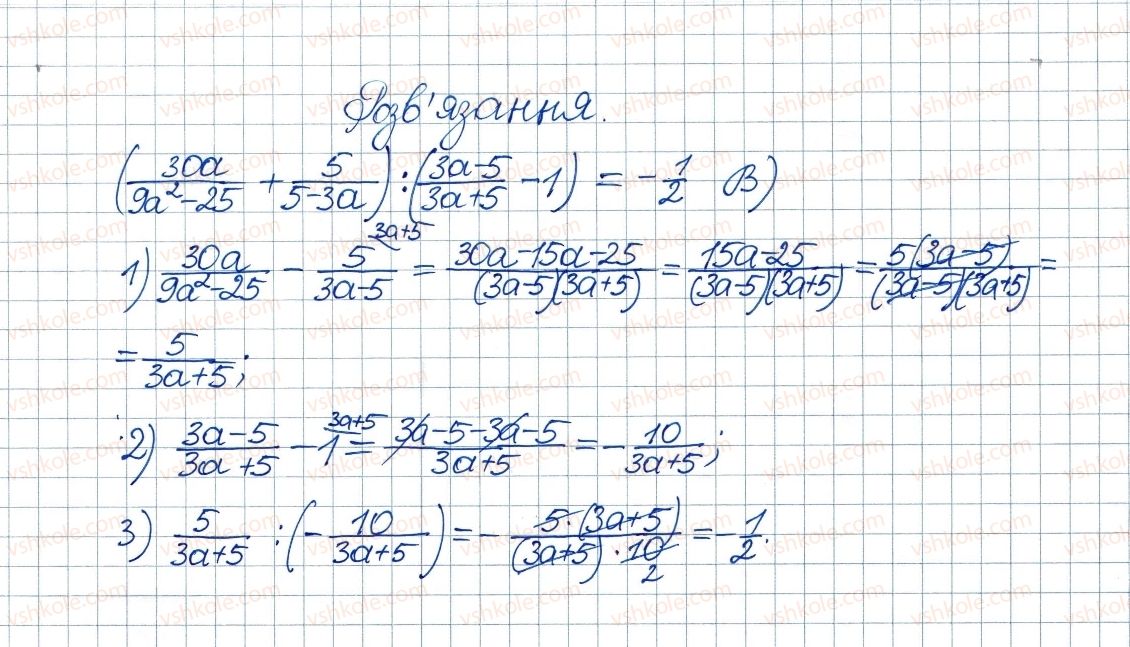 Розв'язання.
(30a/(9a²-25) + 5/(5-3a)) : ((3a-5)/(3a+5) - 1) = -1/2 В)
1) 30a/(9a²-25) - 5/(3a-5) ^(3a+5) = (30a-15a-25)/((3a-5)(3a+5)) = (15a-25)/((3a-5)(3a+5)) = 5(3a-5)/((3a-5)(3a+5)) =
= 5/(3a+5);
2) (3a-5)/(3a+5) - 1 ^(3a+5) = (3a-5-3a-5)/(3a+5) = -10/(3a+5);
3) 5/(3a+5) : (-10/(3a+5)) = -(5·(3a+5))/((3a+5)·10) 2 = -1/2.
vshkole.com